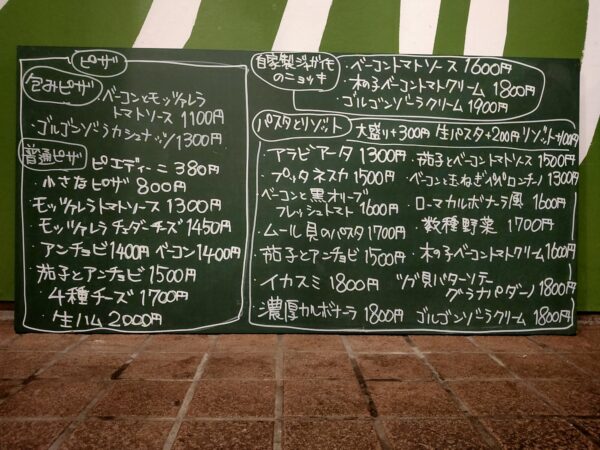 ピザ
包みピザ
ベーコンとモッツァレラ
トマトソース 1100円
・ゴルゴンゾーラカシュナッツ 1300円
普通ピザ
ピエディーニ 380円
・小さなピザ 800円
モッツァレラトマトソース 1300円
・モッツァレラ チェダーチーズ 1450円
・アンチョビ 1400円 ベーコン 1400円
・茄子とアンチョビ 1500円
・4種チーズ 1700円
・生ハム 2000円
自家製ジャガイモ
のニョッキ
・ベーコントマトソース 1600円
・木の子ベーコントマトクリーム 1800円
・ゴルゴンゾーラクリーム 1900円
パスタとリゾット
大盛り+300円 生パスタ+200円 リゾット+100円
・アラビアータ 1300円
・プッタネスカ 1500円
・ベーコンと黒オリーブ
フレッシュトマト 1600円
・ムール貝のパスタ 1700円
・茄子とアンチョビ 1500円
・イカスミ 1800円
・濃厚カルボナーラ 1800円
・茄子とベーコントマトソース 1500円
・ベーコンと玉ねぎペペロンチーノ 1300円
・ローマカルボナーラ風 1600円
・数種野菜 1700円
・木の子ベーコントマトクリーム 1600円
ツブ貝バターソテー
グラナパダーノ 1800円
ゴルゴンゾーラクリーム 1800円